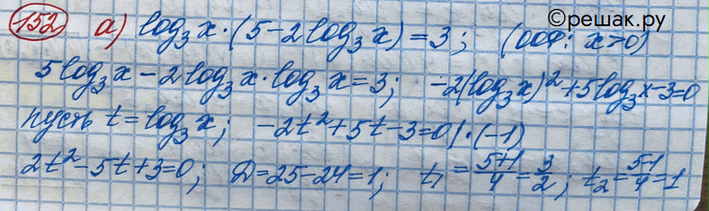 ©решак.ру
152 а) log₃x·(5-2log₃x)=3; (ООФ: x>0)
5log₃x-2log₃x·log₃x=3; -2(log₃x)²+5log₃x-3=0
пусть t=log₃x; -2t²+5t-3=0|·(-1)
2t²-5t+3=0; D=25-24=1; t₁=(5+1)/4=3/2; t₂=(5-1)/4=1